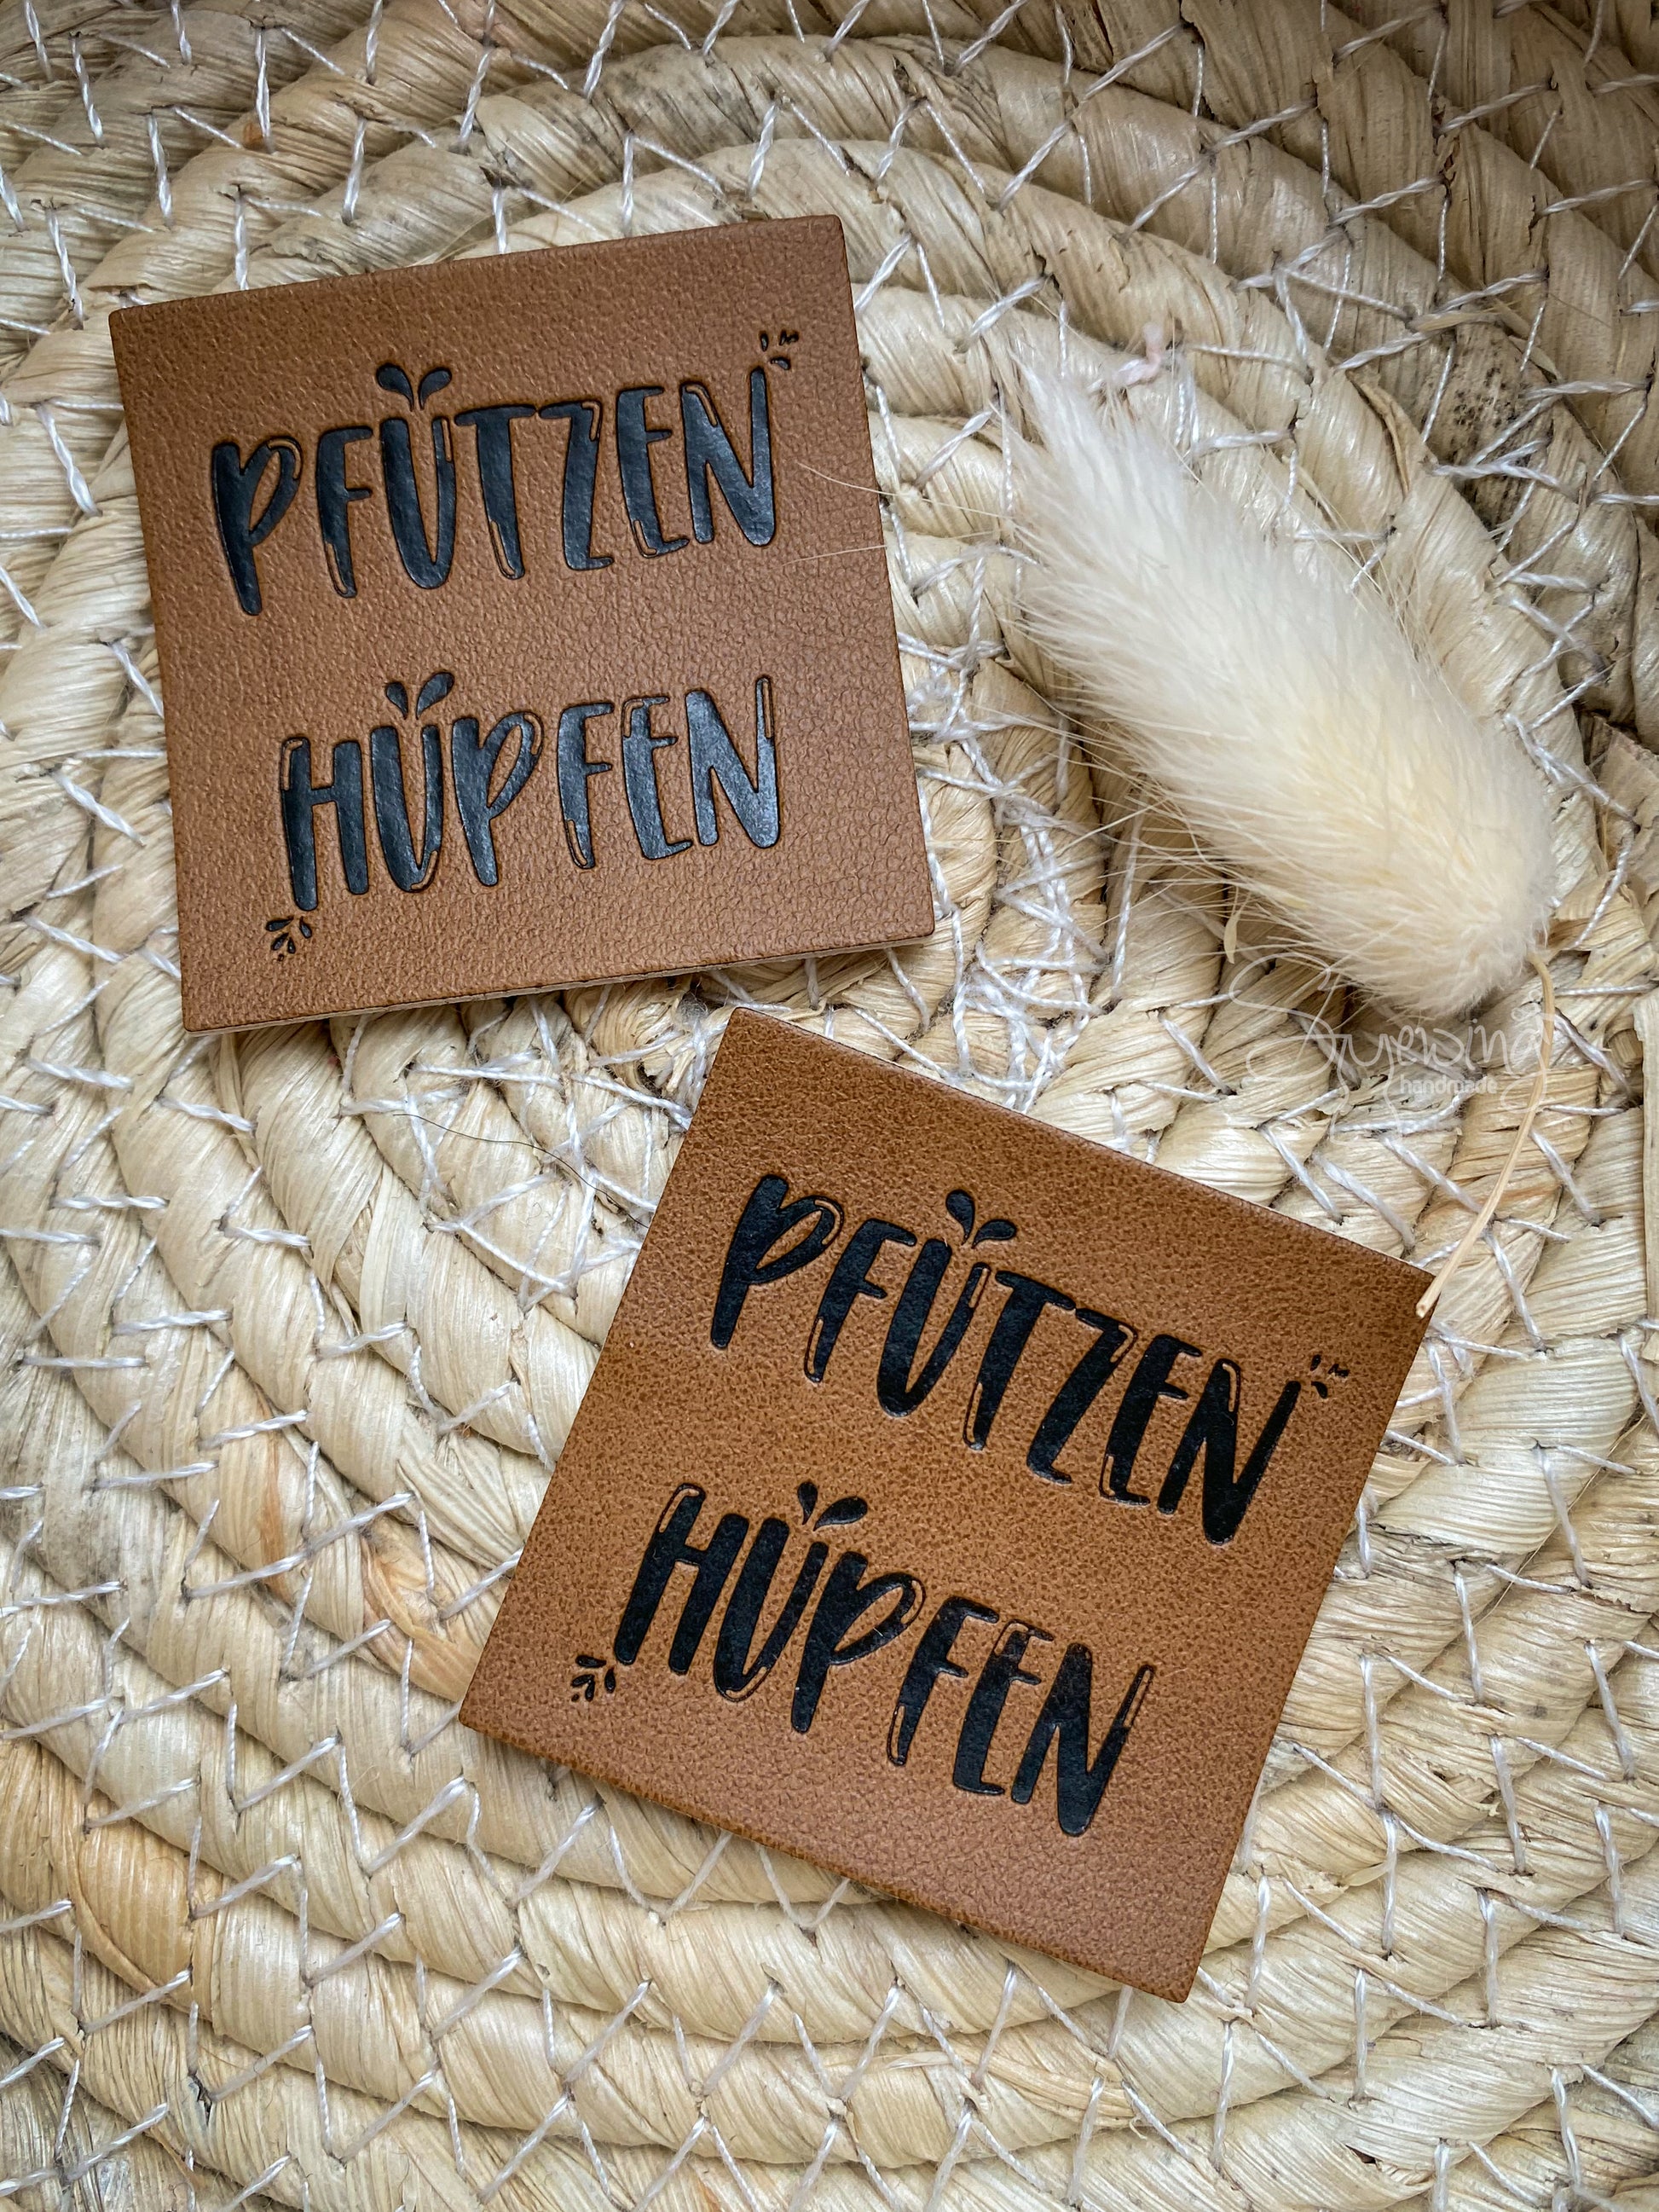 PFÜTZEN
HÜPFEN
handmade
PFÜTZEN
HÜPFEN